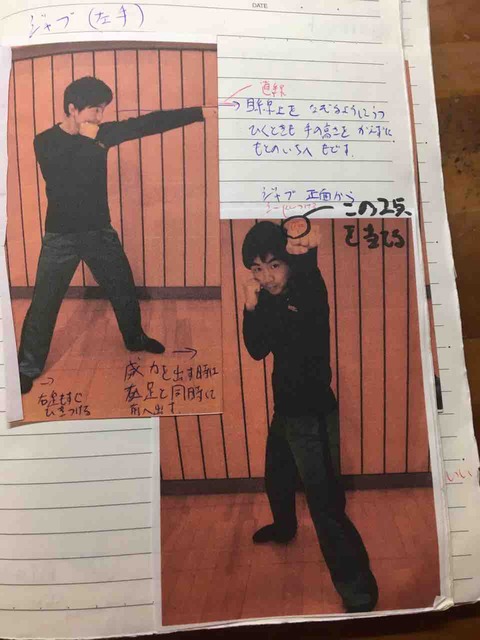 DATE
ジャブ (左手)
直線
→ 目線上を なぞるようにうつ
ひくときも 手の高さを かえずに
もとのいちへ もどす。
ジャブ 正面から
この2点
を当てる
→
威力を出す時は
左足も同時に
前へ出す
→
右足もすぐ
ひきつける
いい